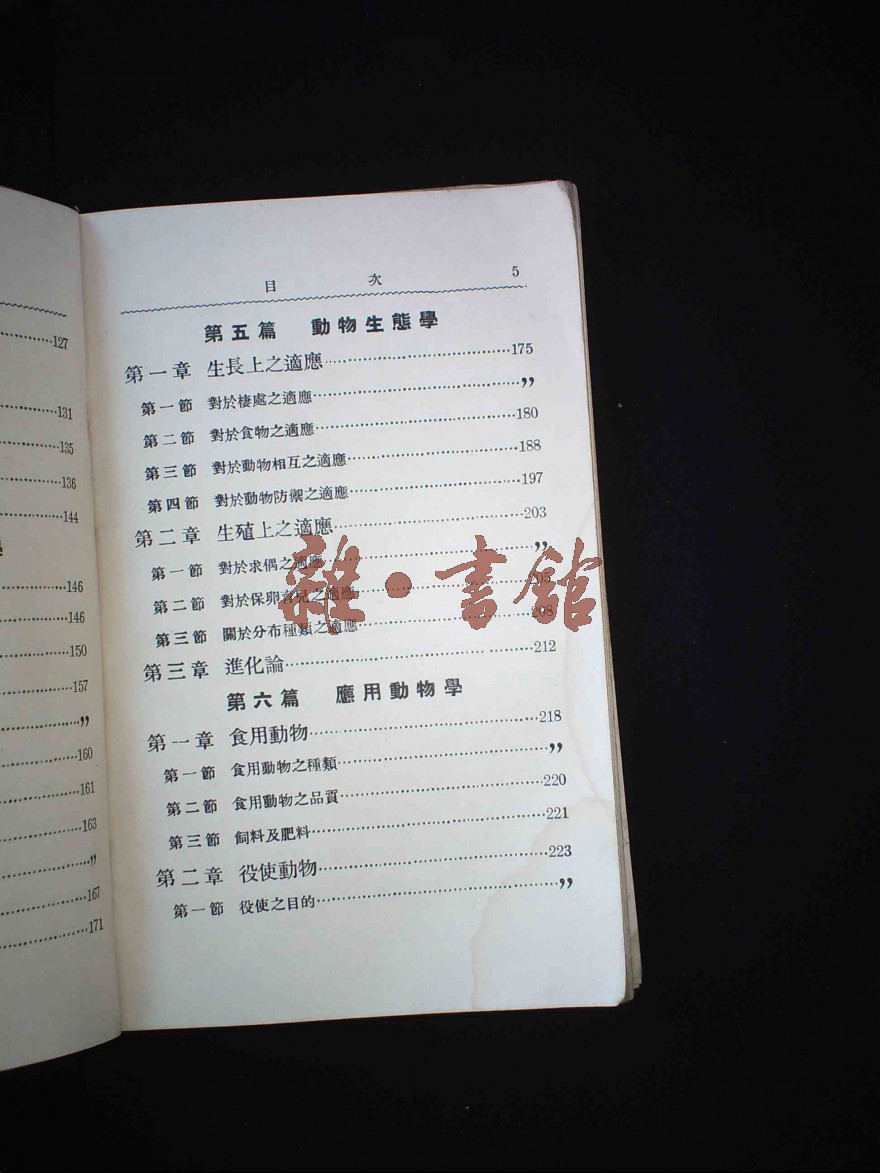 127
131
135
136
144
146
146
150
157
”
160
161
163
”
167
171
目 次 5
第五篇 動物生態學
第一章 生長上之適應 175
第一節 對於棲處之適應 ”
第二節 對於食物之適應 180
第三節 對於動物相互之適應 188
第四節 對於動物防禦之適應 197
第二章 生殖上之適應 203
第一節 對於求偶之適應 ”
第二節 對於保卵育兒之適應 205
第三節 關於分布種類之適應 208
第三章 進化論 212
第六篇 應用動物學
第一章 食用動物 218
第一節 食用動物之種類 ”
第二節 食用動物之品質 220
第三節 飼料及肥料 221
第二章 役使動物 223
第一節 役使之目的 ”
雜·書館